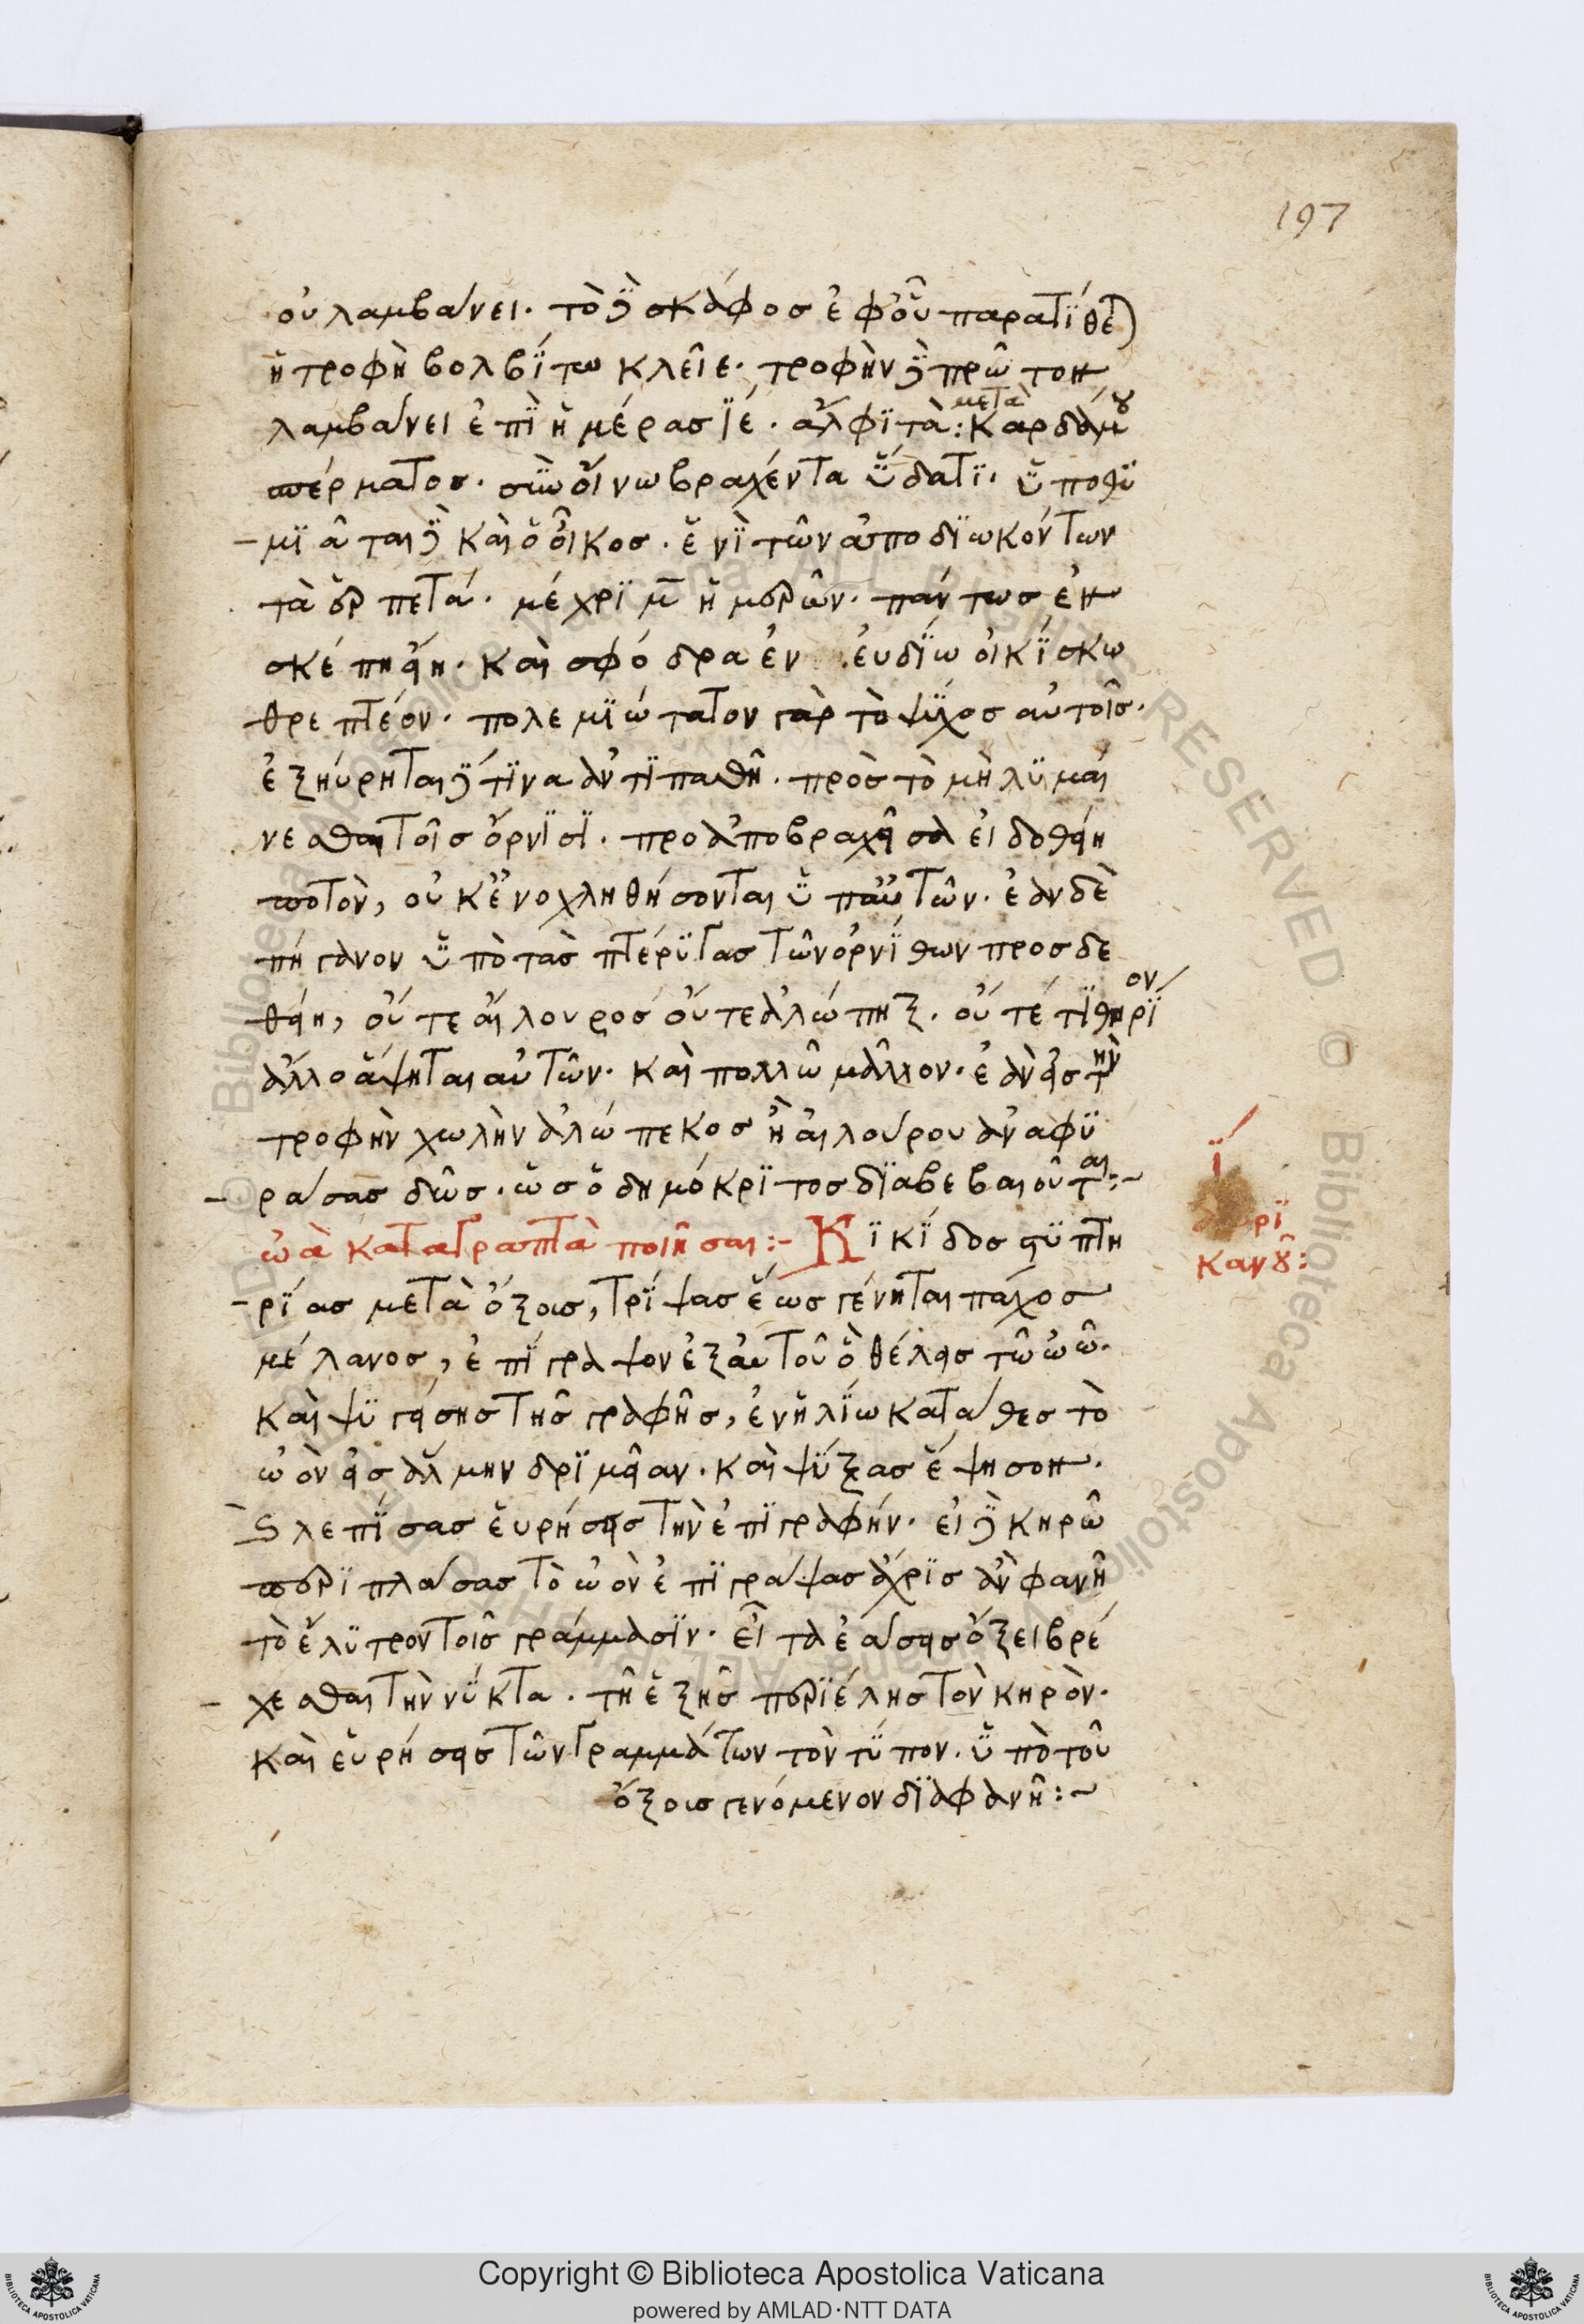 197
οὐ λαμβάνει. τὸ δὲ σκάφος ἐφ' οὗ παρατίθεται
ἡ τροφὴ βολβίτω κλεῖε. τροφὴν δὲ πρῶτον
λαμβάνει ἐπὶ ἡμέρας ϊέ. ἄλφιτα: μετὰ καρδάμου
σπέρματος. σὺν οἴνω βραχέντα ὕδατι. ὑποθυ
μιᾶται δὲ καὶ ὁ οἶκος. ἑνὶ τῶν ἀποδιωκόντων
τὰ ἑρπετά. μέχρι μ̄ ἡμερῶν. πάντως ἐν
σκέπη ῃ. καὶ σφόδρα ἐν εὐδίω οἰκίσκω
θρεπτέον. πολεμιώτατον γὰρ τὸ ψύχος αὐτοῖς.
ἐξηύρηται δέ τινα ἀντιπαθῆ. πρὸς τὸ μὴ λυμαί
νεσθαι τοῖς ὄρνισι. προαποβραχεῖσα εἰ δοθείη
ποτὸν, οὐκ ἐνοχληθήσονται ὑπ' αὐτῶν. ἐὰν δὲ
πήγανον ὑπὸ τὰς πτέρυγας τῶν ὀρνίθων προσδε
θείη, οὔτε αἴλουρος οὔτε ἀλώπηξ. οὔτέ τι θηρίον
ἄλλο ἅψηται αὐτῶν. καὶ πολλῶ μᾶλλον. ἐὰν εἰς τὴν
τροφὴν χωλὴν ἀλώπεκος ἢ αἰλούρου ἀναφυ
ράσας δῶς. ὡς ὁ δημόκριτος διαβεβαιοῦται:~
ὠὰ κατάγραπτα ποιῆσαι:- Κικίδος στυπτη
ρίας μετὰ ὄξους, τρίψας ἕως γένηται πάχος
μέλανος, ἐπίγραψον ἐξ αὐτοῦ ὃ θέλεις τῶ ὠῶ.
καὶ ψυγείσης τῆς γραφῆς, ἐν ἡλίω κατάθες τὸ
ὠὸν εἰς ἅλμην δριμεῖαν. καὶ ψύξας ἕψησον.
Ϛ λεπίσας εὑρήσεις τὴν ἐπιγραφήν. εἰ δὲ κηρῶ
περιπλάσας τὸ ὠὸν ἐπιγράψας ἄχρις ἂν φανῆ
τὸ ἔλυτρον τοῖς γράμμασιν. εἶτα ἐάσεις ὄξει βρέ
χεσθαι τὴν νύκτα. τῆ ἑξῆς περιέλης τὸν κηρὸν.
καὶ εὑρήσεις τῶν γραμμάτων τὸν τύπον. ὑπὸ τοῦ
ὄξους γενόμενον διαφανῆ:~
ί
ρι
κανοῦ:
Copyright © Biblioteca Apostolica Vaticana
powered by AMLAD·NTT DATA